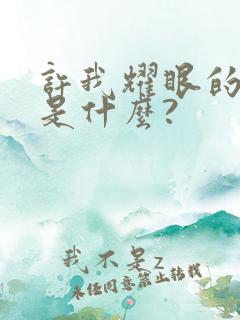 許我耀眼的
是什麼？
我不是z
未经同意禁止转载